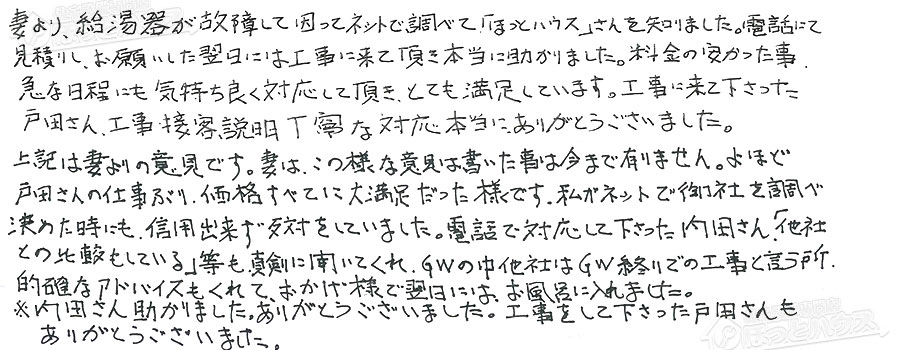 妻より、給湯器が故障して困ってネットで調べて「ほっとハウス」さんを知りました。電話にて
見積りし、お願いした翌日には工事に来て頂き本当に助かりました。料金の安かった事、
急な日程にも気持ち良く対応して頂き、とても満足しています。工事に来て下さった
戸田さん、工事接客説明丁寧な対応本当にありがとうございました。
上記は妻よりの意見です。妻は、この様な意見は書いた事は今まで有りません。よほど
戸田さんの仕事ぶり、価格すべてに大満足だった様です。私がネットで御社を調べ
決めた時にも、信用出来ず反対をしていました。電話で対応して下さった内田さん、「他社
との比較もしている」等も真剣に聞いてくれ、GWの中他社はGW終りでの工事と言う所、
的確なアドバイスもくれて、おかげ様で翌日には、お風呂に入れました。
※内田さん助かりました。ありがとうございました。工事をして下さった戸田さんも
ありがとうございました。
ほっとハウス